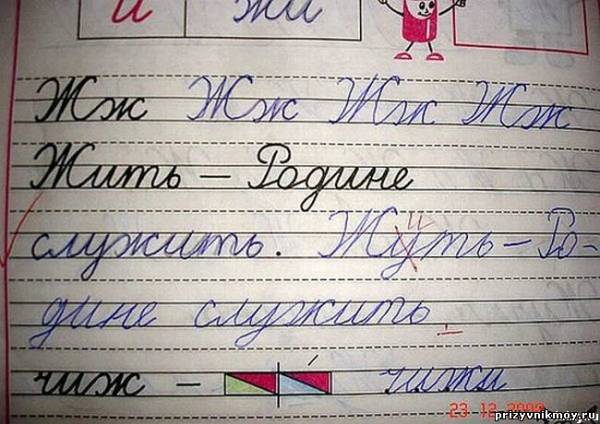 и жи
Жж Жж Жж Жж
Жить – Родине
служить. Жуть – Ро-
и
дине служить
чиж – чижи
23 12 2009
prizyvnikmoy.ru